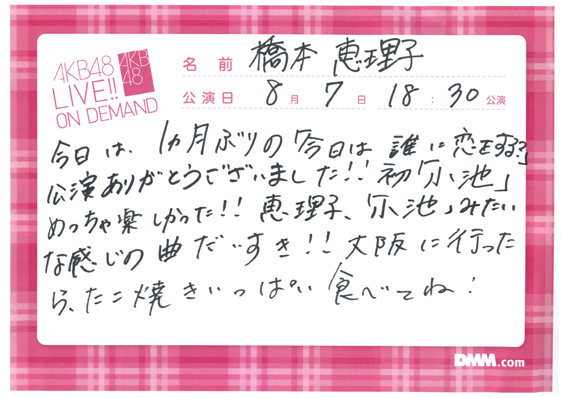 AKB48
LIVE!!
ON DEMAND
AKB
48
名前 橋本 恵理子
公演日 8月 7日 18:30公演
今日は、1ヵ月ぶりの「今日は誰に恋をする?」
公演ありがとうございました!! 初「小池」
めっちゃ楽しかった!! 恵理子、「小池」みたい
な感じの曲だいすき!! 大阪に行った
ら、たこ焼きいっぱい食べてね!
DMM.com